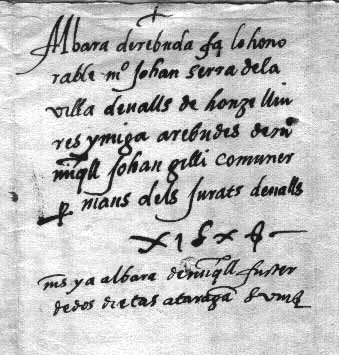 Albara derebuda fa lo hono
rable mº Johan serra dela
villa de valls de honze lliu
res y miga a rebudes de m
miqll Johan gilli comuner
p mans dels Jurats de valls
ms ya albara de miqll fuster
de dos dietas a taraga